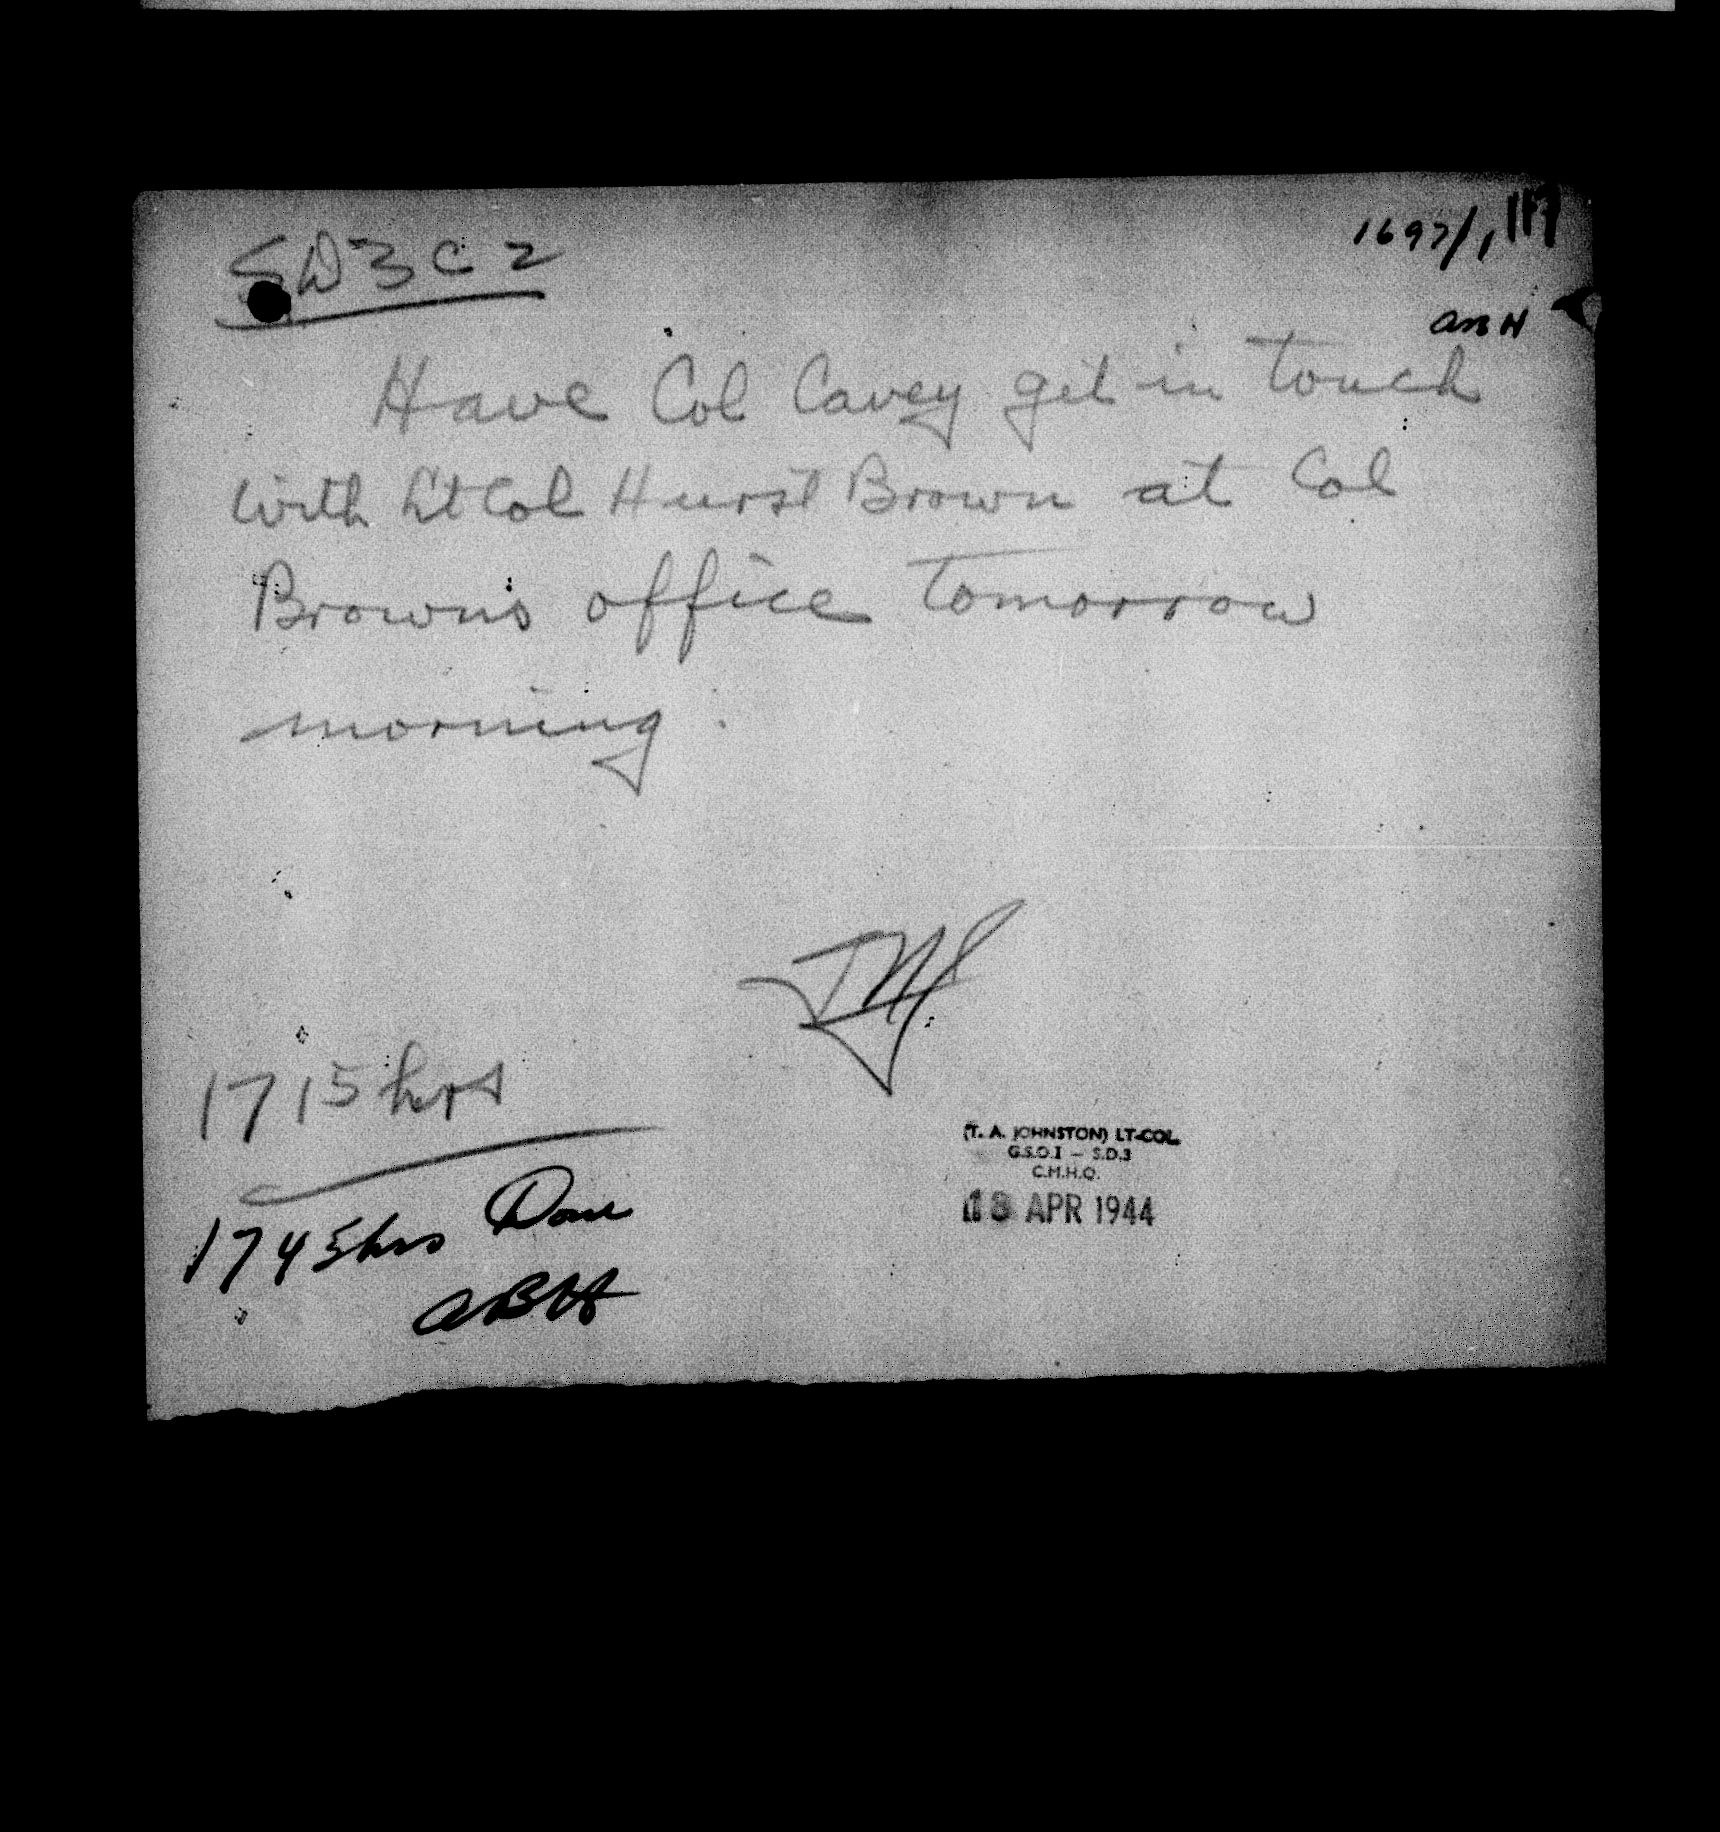 SD3C2
1697/1
ABH
Have Col Cavey get in touch
with Lt Col Hurst Brown at Col
Browns office tomorrow
morning.
TAJ
1715 hrs
(T. A. JOHNSTON) LT-COL.
G.S.O.I — S.D.3
C.M.H.Q.
18 APR 1944
1745 hrs Done
ABH